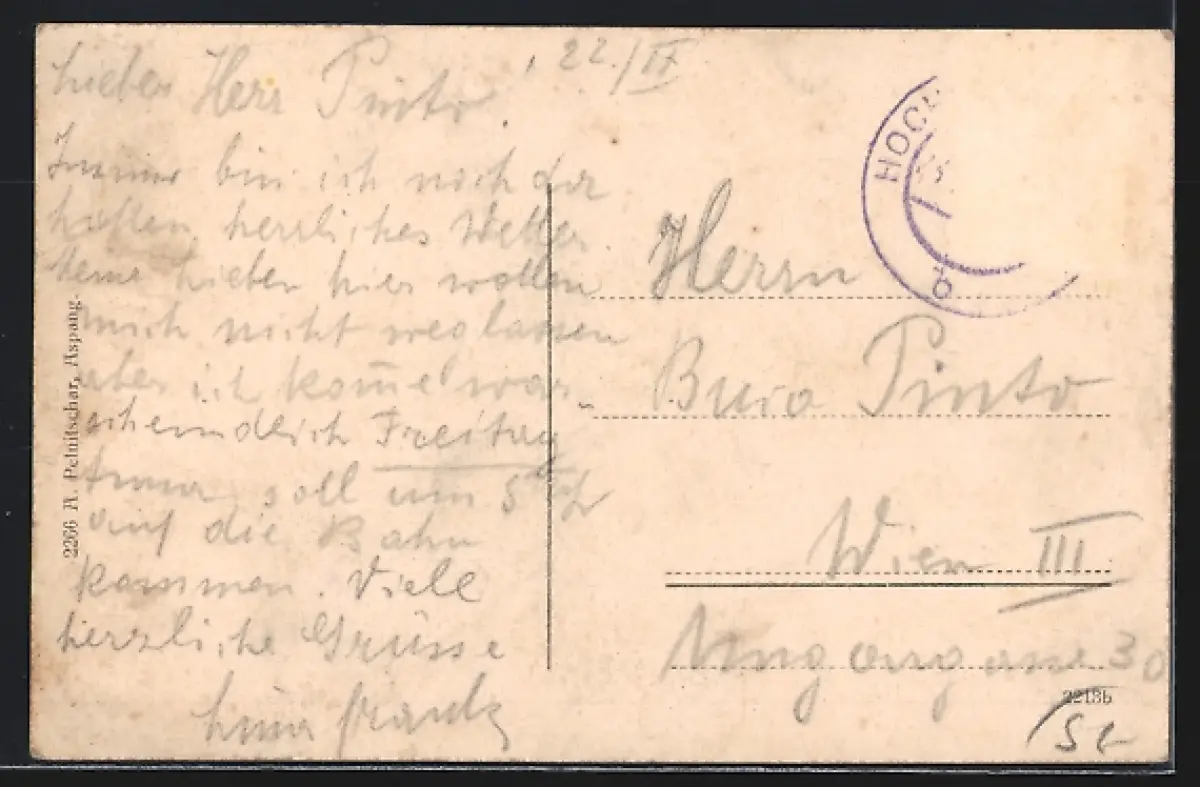 22./II
Lieber Herr Pinto
Immer bin ich noch da
hatten herrliches Wetter
Meine Lieben hier wollen
mich nicht weglassen
aber ich kom̄e war-
scheindlich Freitag
Anna soll um 5 Uhr
auf die Bahn
kommen. Viele
herzliche Grüsse
2266 A. Pelnitschar, Aspang.
HOCH
b
Herrn
Pinto
Wien III
Ungargasse 30
2213b